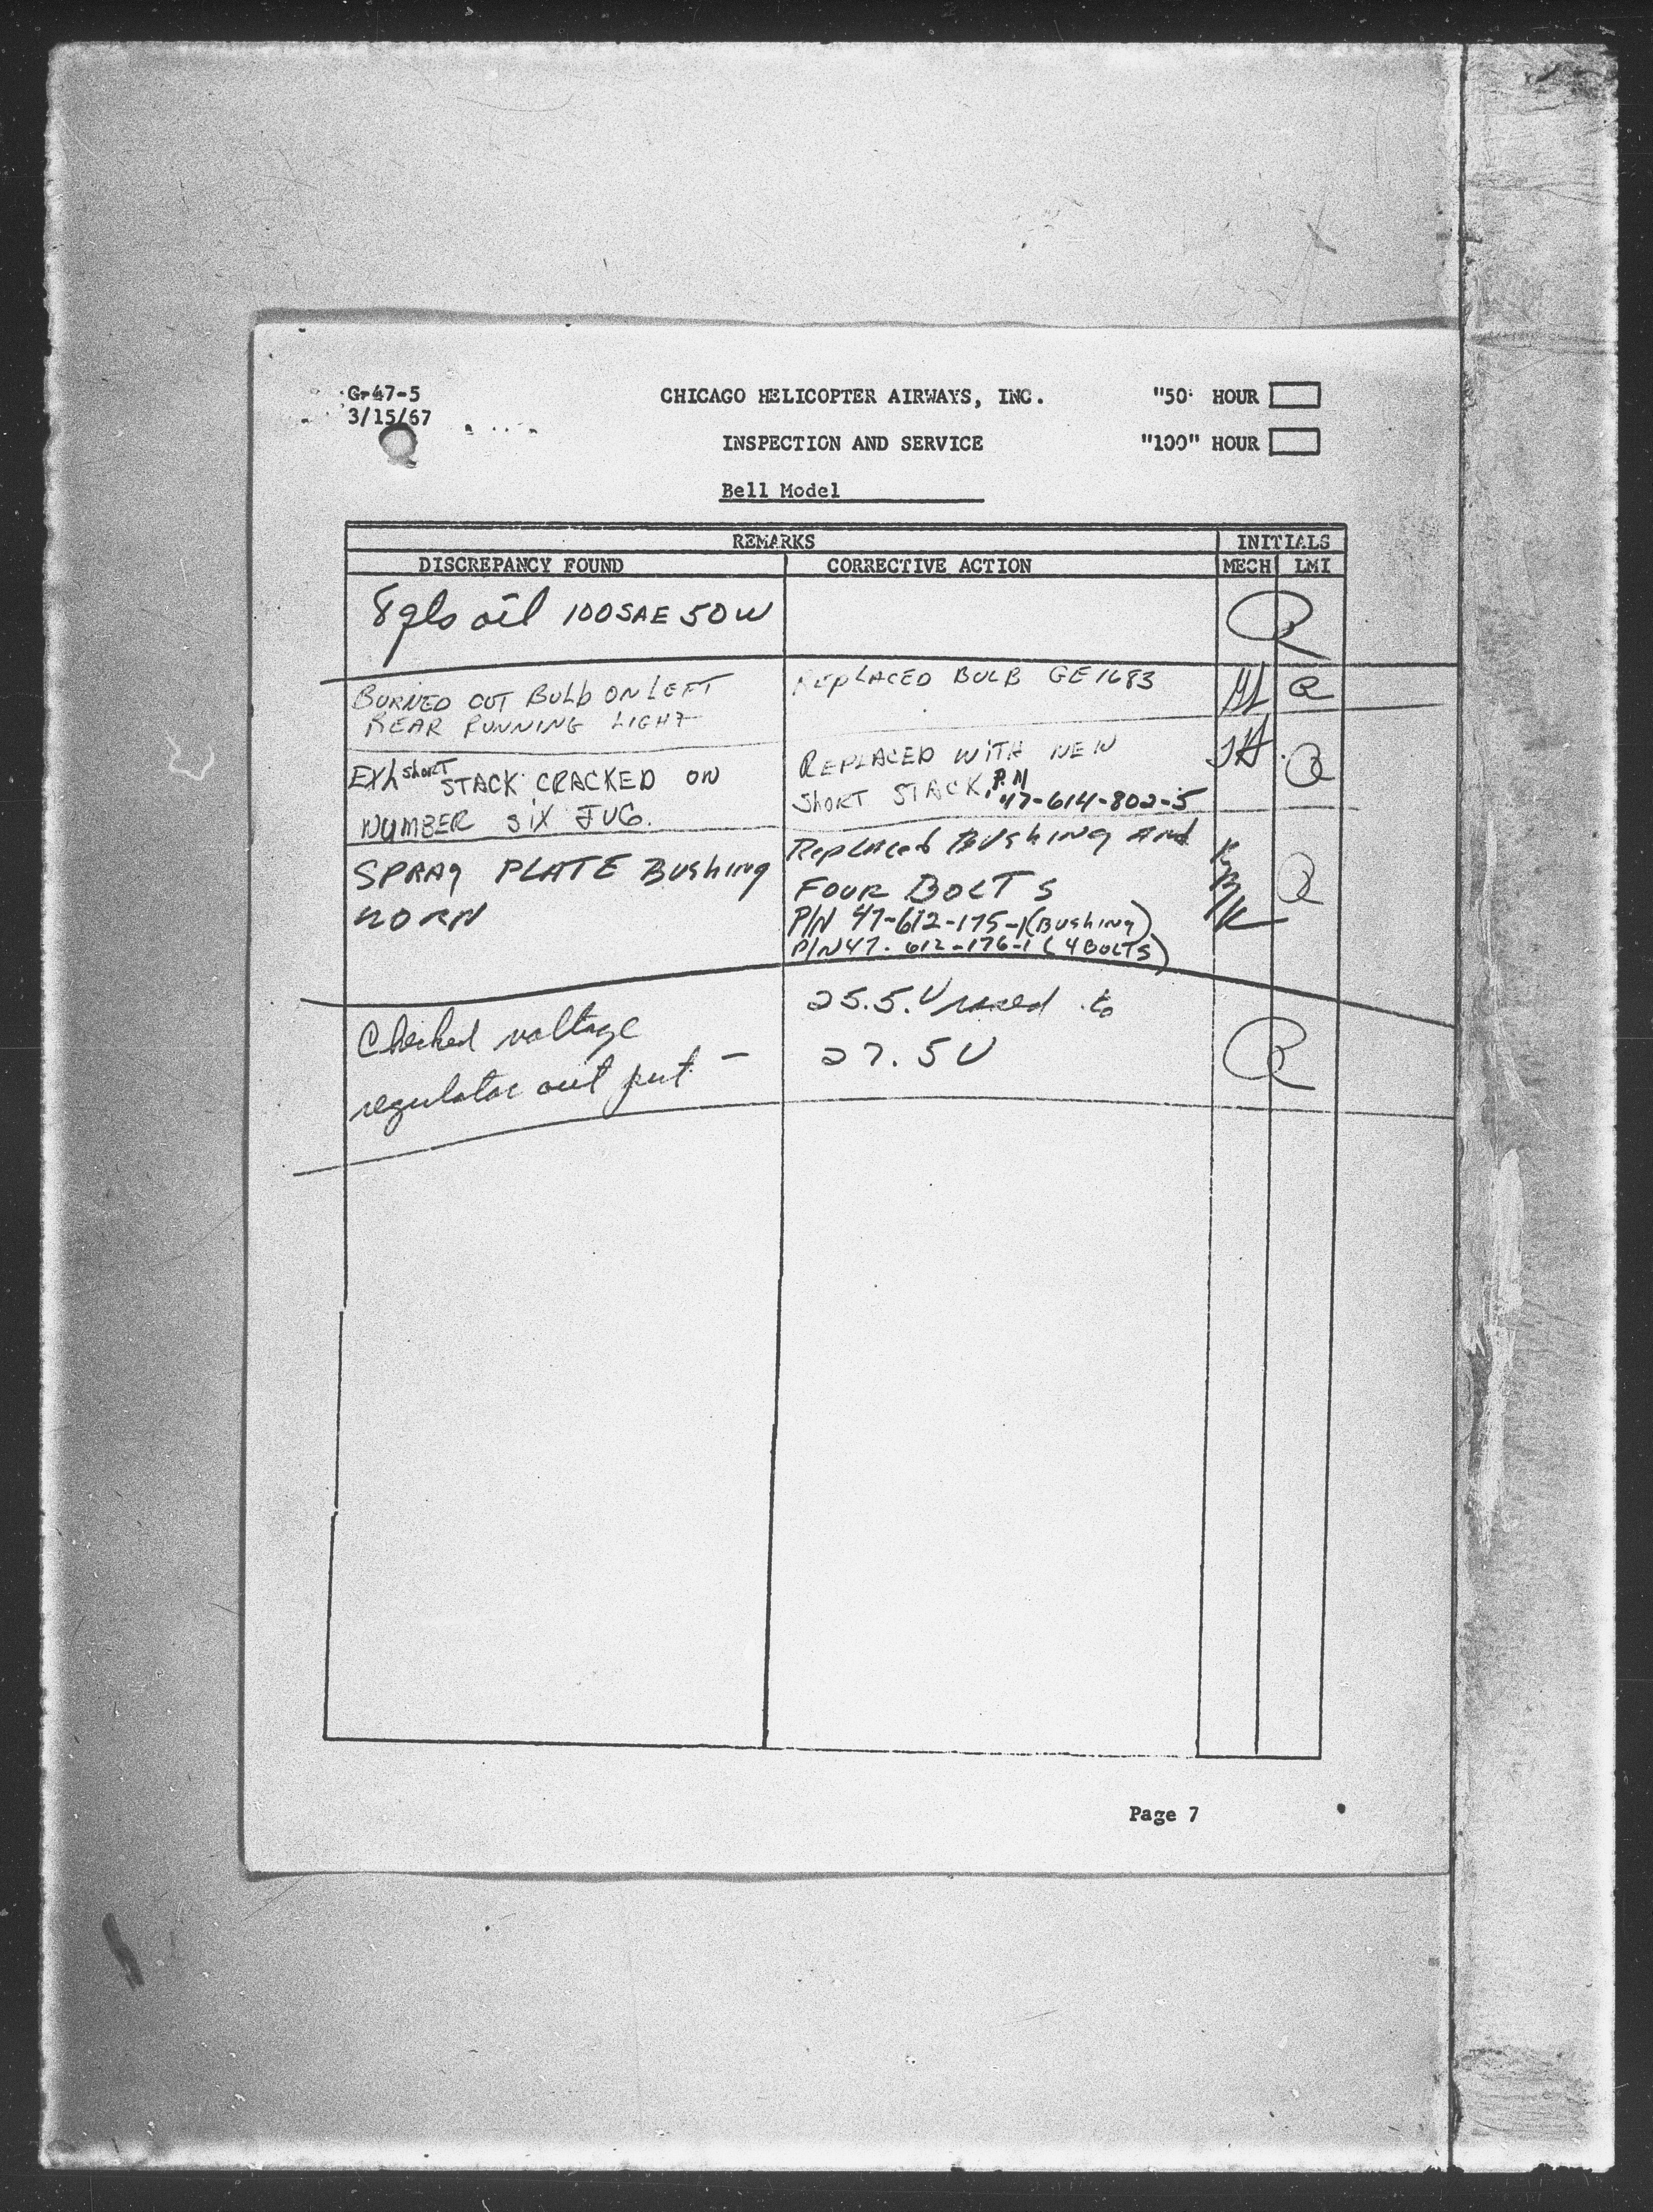 G-47-5
3/15/67
CHICAGO HELICOPTER AIRWAYS, INC.
"50" HOUR
INSPECTION AND SERVICE
"100" HOUR
Bell Model
REMARKS
INITIALS
DISCREPANCY FOUND
CORRECTIVE ACTION
MECH
LMI
8 qts oil 100 SAE 50W
BURNED OUT BULb ON LEFT
REAR RUNNING LIGHT
REPLACED BULB GE 1683
EXh short STACK CRACKED ON
NUMBER SIX JUG.
REPLACED WITH NEW
SHORT STACK. P.N
47-614-802-5
SPRAg PLATE Bushing
WORN
Replaced Bushing And
FOUR BOLTS
P/N 47-612-175-1 (Bushing)
P/N 47-612-176-1 (4 BOLTS)
Checked voltage
regulator out put -
25.5.V raised to
27.5V
Page 7